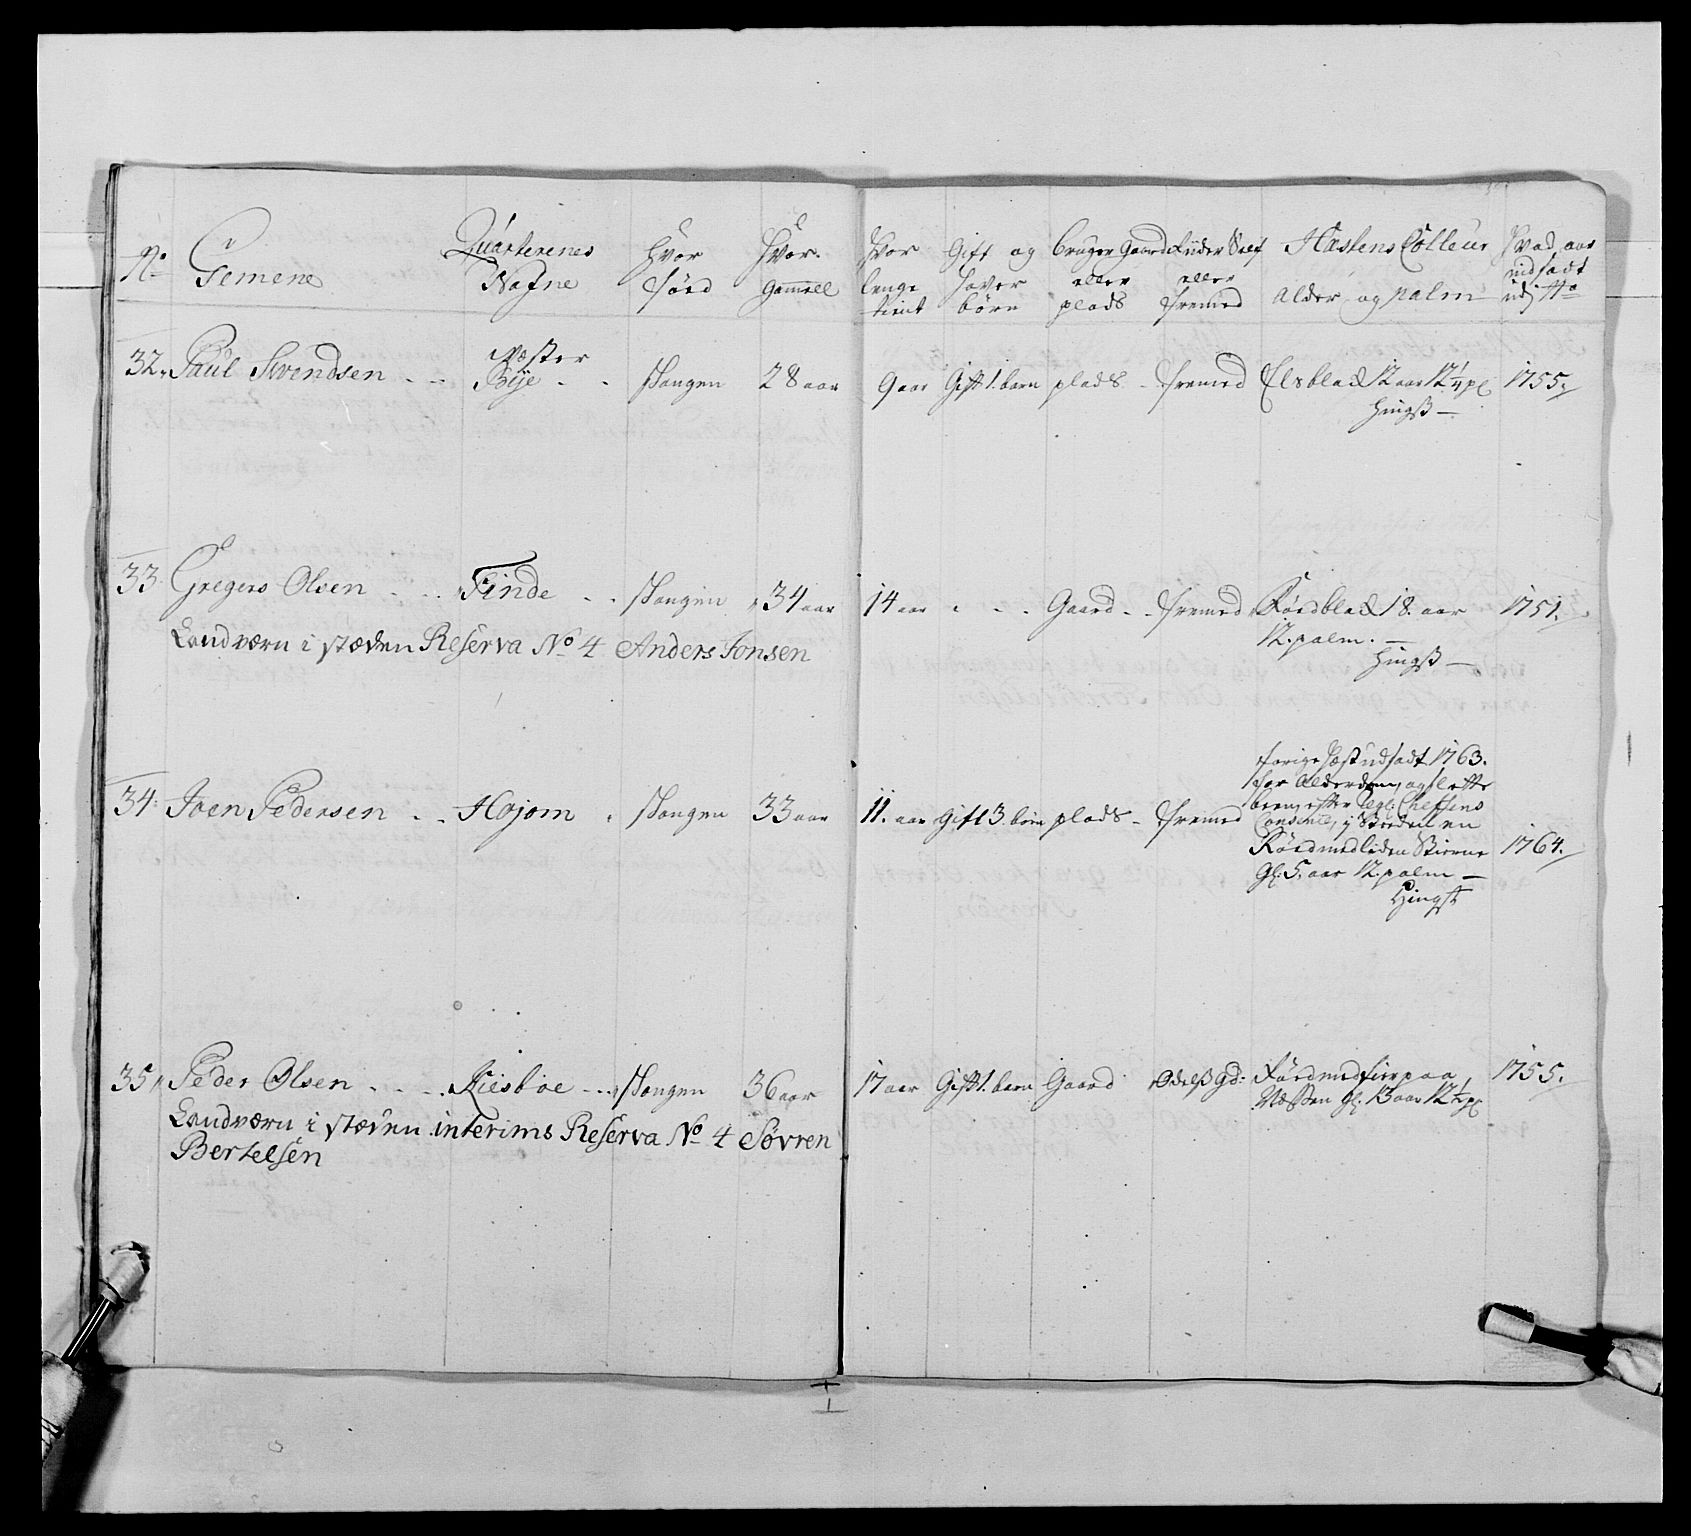 No Gemene Quarterenes Nafne Hvor Förd Hvor Gammell Hvor lenge tient Gift og haver börn bruger Gaard eller plads Riider Self eller fremed Hæstens Colleur Alder og palm Hvad aar indsadt
32. Paul Svendsen - - Væster Bÿe - - Stangen 28 aar 9 aar Gift 1. barn plads - fremed Elsblack 12 aar 12 1/4 pl 1755.
Hingst —
33. Gregers Olsen - - Finde - - Stangen 34 aar 14 aar - - Gaard - - fremed Rödblack 18. aar 1751.
12. palm. —
Hingst —
Landværn i stæden Reserva No 4 Anders Jonsen
34. Joen Pedersen - - Hojom Stangen 33 aar 11. aar Gift 3. börn plads - fremed forige Hæst udsadt 1763.
for Alderdom, og
efter Cheffens
Consente, i Steden en
Röed med liden Stierne 1764.
Gl. 5. aar 12. palm —
Hingst
35. Peder Olsen - - - Kiesboe - - Stangen 36 aar 17 aar Gift 1. barn Gaard Odelß gd: 1755.
Næssen gl. 13 aar 12 1/2 pl
Landværn i stæden interims Reserva No 4 Sövren
Bertelsen